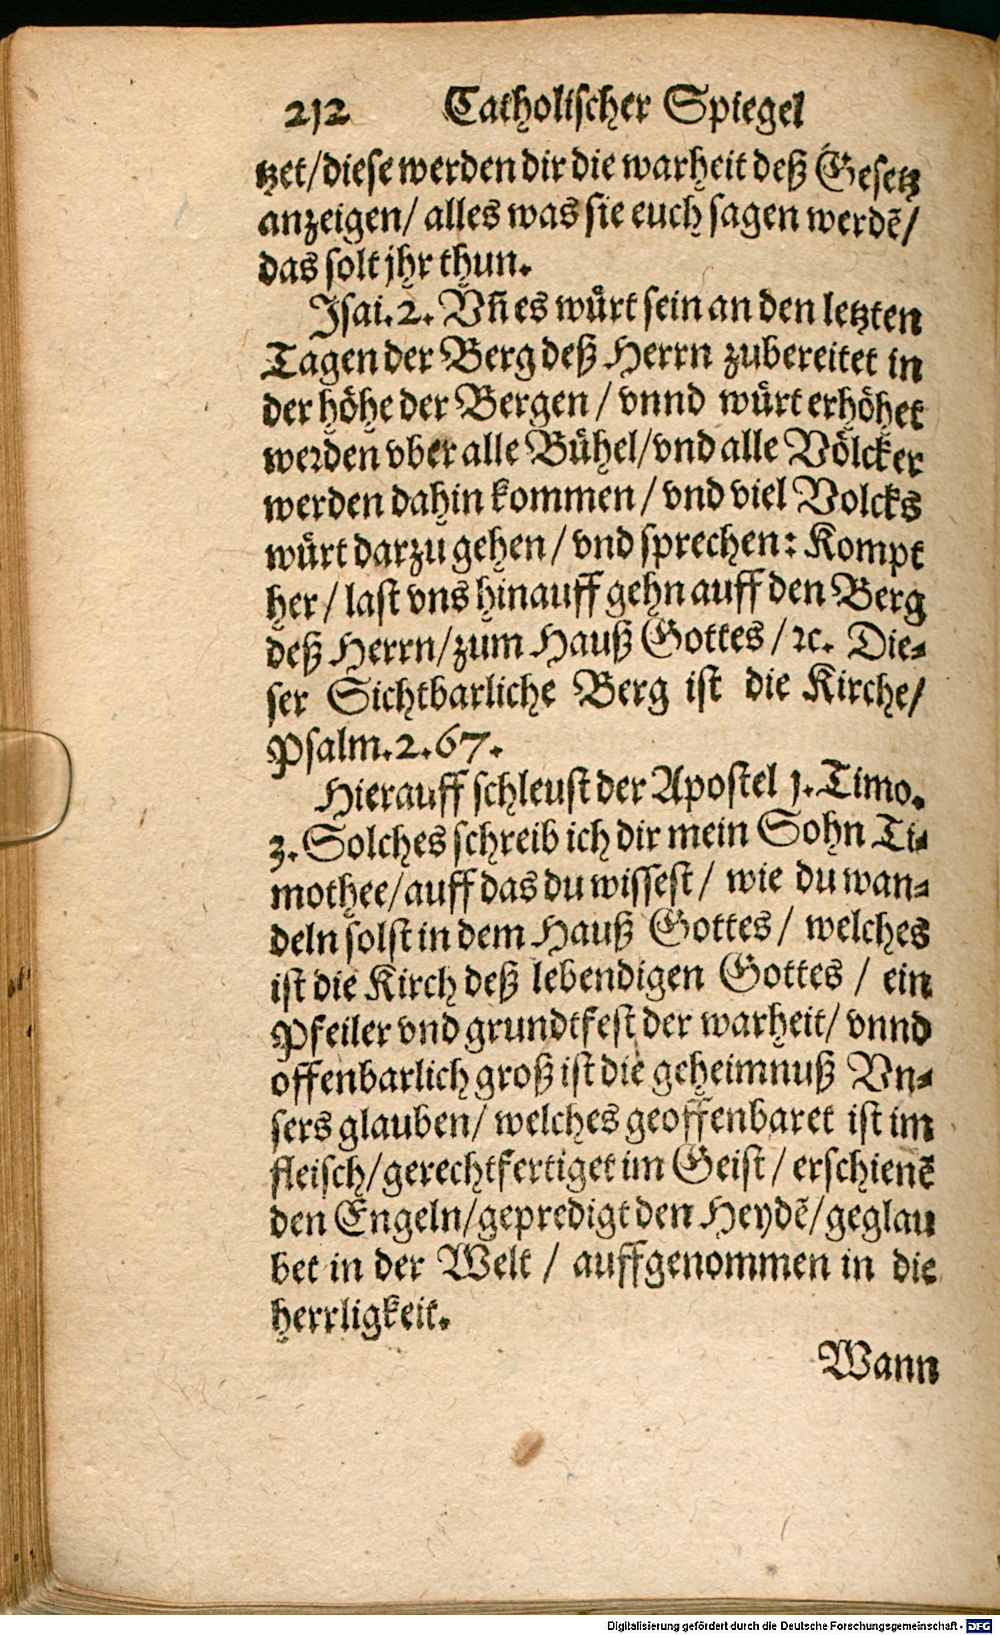 212 Catholischer Spiegel
tzet/diese werden dir die warheit deß Gesetz
anzeigen/ alles was sie euch sagen werdẽ/
das solt jhr thun.
Isai. 2. Vñ es wuͤrt sein an den letzten
Tagen der Berg deß Herrn zubereitet in
der hoͤhe der Bergen / vnnd wuͤrt erhoͤhet
werden vber alle Buͤhel/vnd alle Voͤlcker
werden dahin kommen / vnd viel Volcks
wuͤrt darzu gehen / vnd sprechen: Kompt
her / last vns hinauff gehn auff den Berg
deß Herrn/zum Hauß Gottes / ꝛc. Die-
ser Sichtbarliche Berg ist die Kirche/
Psalm. 2. 67.
Hierauff schleust der Apostel 1. Timo.
3. Solches schreib ich dir mein Sohn Ti-
mothee/auff das du wissest / wie du wan-
deln solst in dem Hauß Gottes / welches
ist die Kirch deß lebendigen Gottes / ein
Pfeiler vnd grundtfest der warheit/ vnnd
offenbarlich groß ist die geheimnuß Vn-
sers glauben/ welches geoffenbaret ist im
fleisch/gerechtfertiget im Geist / erschienẽ
den Engeln/gepredigt den Heydẽ/geglau
bet in der Welt / auffgenommen in die
herrligkeit.
Wann
Digitalisierung gefördert durch die Deutsche Forschungsgemeinschaft - DFG